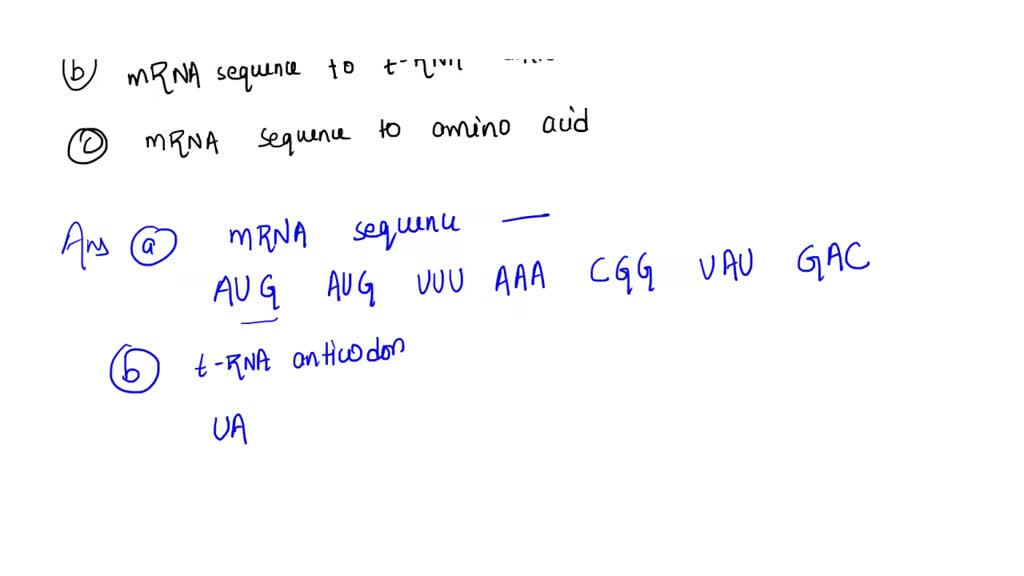 (b) mRNA sequence to t-RNA
(c) mRNA sequence to amino acid
Ans (a) mRNA sequence —
AUG AUG UUU AAA CGG UAU GAC
(b) t-RNA anticodon
UA